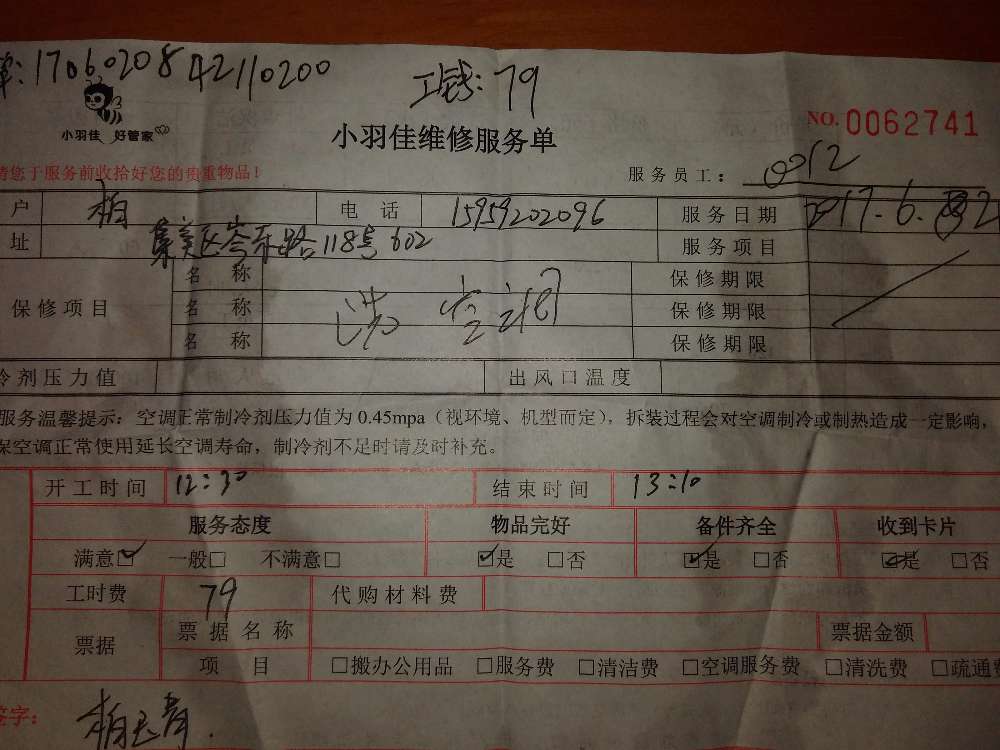 单:17060208 42110200
工钱:79
小羽佳 好管家
小羽佳维修服务单
NO.0062741
请您于服务前收拾好您的贵重物品!
服务员工: 0012
户 柏 电话 15959202096 服务日期
址 集美区岑东路118号602 服务项目
保修项目 名称 洗空调 保修期限
名称 保修期限
名称 保修期限
冷剂压力值 出风口温度
服务温馨提示:空调正常制冷剂压力值为0.45mpa(视环境、机型而定),拆装过程会对空调制冷或制热造成一定影响,
保空调正常使用延长空调寿命,制冷剂不足时请及时补充。
开工时间 12:30 结束时间 13:10
服务态度 物品完好 备件齐全 收到卡片
满意☑ 一般□ 不满意□ ☑是 □否 ☑是 □否 ☑是 □否
工时费 79 代购材料费
票据 票据名称 票据金额
项目 □搬办公用品 □服务费 □清洁费 □空调服务费 □清洗费 □疏通费
签字: